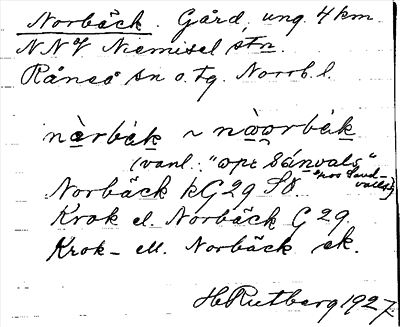 Norrbäck. Gård, ung. 4 km.
NNV Niemisel stn.
Råneå sn o. tg. Norrb. l.
nàrbäk ~ nòorbäk
(vanl. "opt Sánvals"
"hos Sand-
valls")
Norrbäck kG 29 SO
Krok el. Norrbäck G 29.
Krok- ell. Norrbäck ek.
H Rutberg 1927.